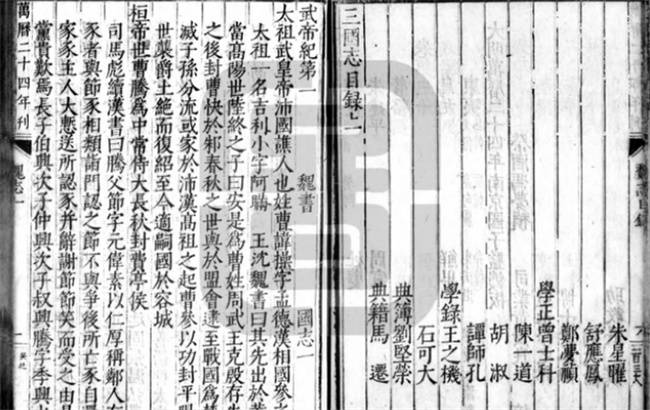 朱星曜
舒應鳳
鄭夢禎
學正曾士科
陳一道
胡淑
譚師孔
學錄王之機
石可大
典簿劉堅榮
典籍馬遷
三國志目錄
武帝紀第一 魏書 國志一
太祖武皇帝沛國譙人也姓曹諱操字孟德漢相國參之
太祖一名吉利小字阿瞞 王沈魏書曰其先出於
當高陽世陸終之子曰安是為曹姓周武王克殷存
之後封曹俠於邾春秋之世與於盟會逮至戰國為
滅子孫分流或家於沛漢高祖之起曹參以功封平
世襲爵土絕而復紹至今適嗣國於容城
桓帝世曹騰為中常侍大長秋封費亭侯
司馬彪續漢書曰騰父節字元偉素以仁厚稱鄰人有
豕者與節豕相類詣門認之節不與爭後所亡豕自
家豕主人大慙送所認豕并辭謝節節笑而受之由是
黨貴歎焉長子伯興次子仲興次子叔興騰字季興
萬曆二十四年刊 魏志一 一